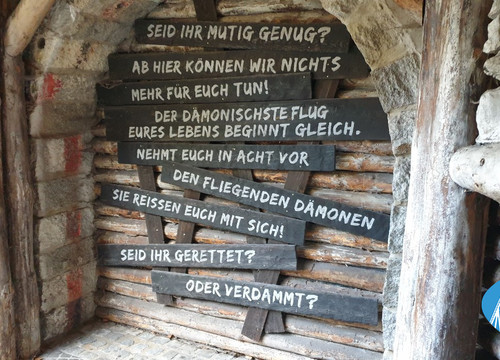 SEID IHR MUTIG GENUG?
AB HIER KÖNNEN WIR NICHTS
MEHR FÜR EUCH TUN!
DER DÄMONISCHSTE FLUG
EURES LEBENS BEGINNT GLEICH.
NEHMT EUCH IN ACHT VOR
DEN FLIEGENDEN DÄMONEN
SIE REISSEN EUCH MIT SICH!
SEID IHR GERETTET?
ODER VERDAMMT?